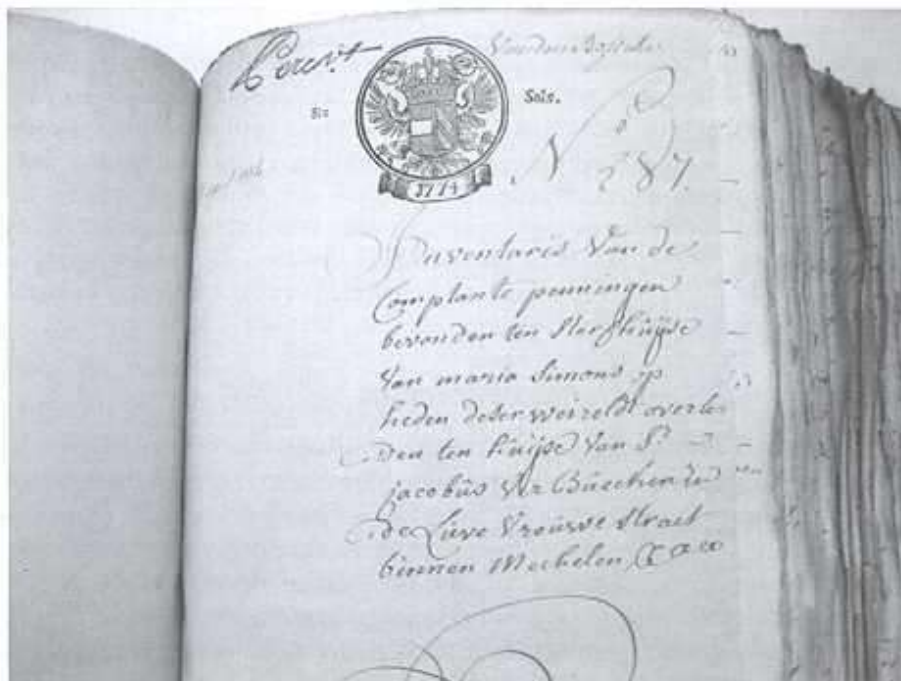 Six Sols.
1774
N.o 287.
Inventaris Van de
Comptante penningen
bevonden ten sterfhuijse
Van maria Simons op
heden deser weireldt overle
den ten huijse Van Sr
jacobus Ver Buecken in
de Lieve Vrouwe straet
binnen Mechelen